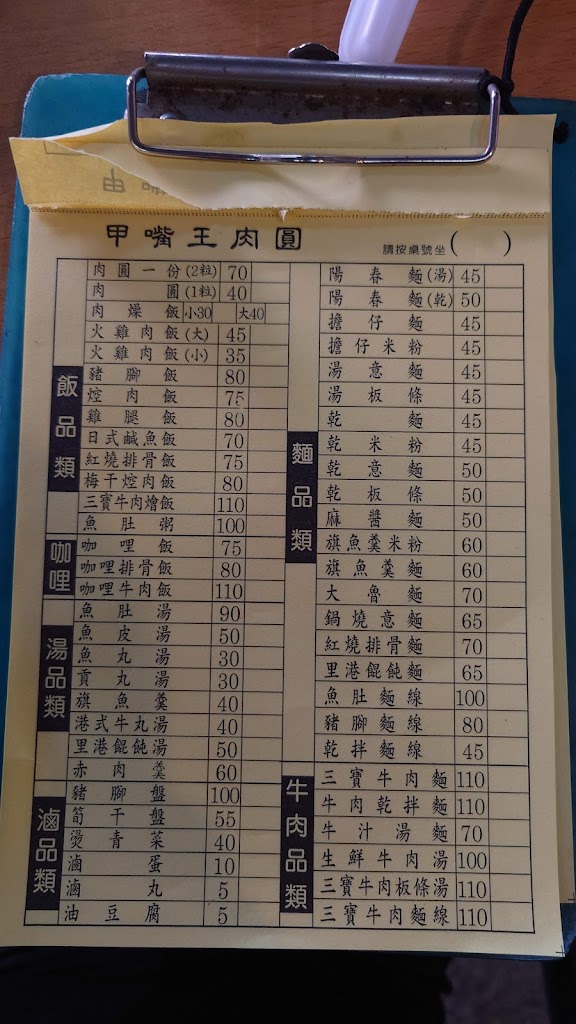 甲嘴王肉圓
請按桌號坐( )
肉圓一份(2粒) 70
肉圓(1粒) 40
肉燥飯 小30 大40
飯品類
火雞肉飯(大) 45
火雞肉飯(小) 35
豬腳飯 80
焢肉飯 75
雞腿飯 80
日式鹹魚飯 70
紅燒排骨飯 75
梅干焢肉飯 80
三寶牛肉燴飯 110
魚肚粥 100
咖哩
咖哩飯 75
咖哩排骨飯 80
咖哩牛肉飯 110
湯品類
魚肚湯 90
魚皮湯 50
魚丸湯 30
貢丸湯 30
旗魚羹 40
港式牛丸湯 40
里港餛飩湯 50
赤肉羹 60
滷品類
豬腳盤 100
筍干盤 55
燙青菜 40
滷蛋 10
滷丸 5
油豆腐 5
麵品類
陽春麵(湯) 45
陽春麵(乾) 50
擔仔麵 45
擔仔米粉 45
湯意麵 45
湯板條 45
乾麵 45
乾米粉 45
乾意麵 50
乾板條 50
麻醬麵 50
旗魚羹米粉 60
旗魚羹麵 60
大魯麵 70
鍋燒意麵 65
紅燒排骨麵 70
里港餛飩麵 65
魚肚麵線 100
豬腳麵線 80
乾拌麵線 45
牛肉品類
三寶牛肉麵 110
牛肉乾拌麵 110
牛汁湯麵 70
生鮮牛肉湯 100
三寶牛肉板條湯 110
三寶牛肉麵線 110